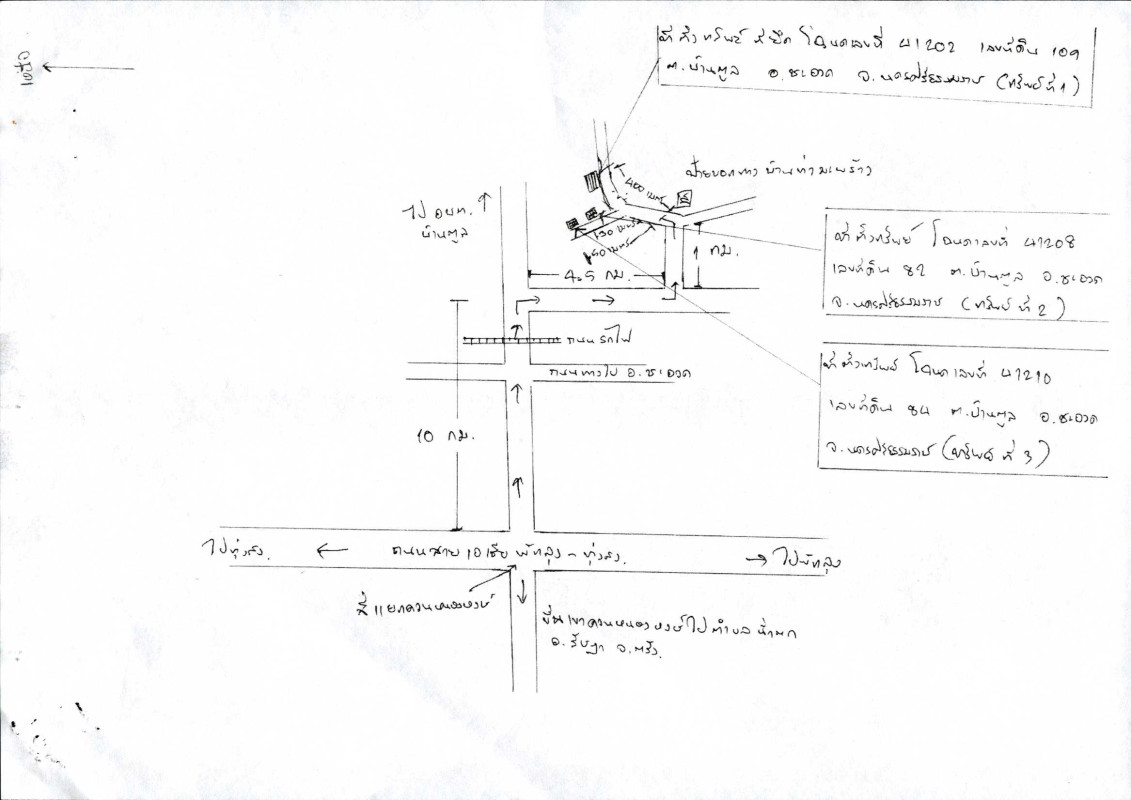 ที่ตั้งทรัพย์ ที่ยึด โฉนดเลขที่ 41202 เลขที่ดิน 109
ต.บ้านตูล อ.ชะอวด จ.นครศรีธรรมราช (ทรัพย์ที่ 1)
เหนือ
ป้ายบอกทาง บ้านท่ามะพร้าว
400 เมตร
ไป อบต.
บ้านตูล
190 เมตร
50 เมตร
1 กม.
4.5 กม.
ที่ตั้งทรัพย์ โฉนดเลขที่ 41208
เลขที่ดิน 82 ต.บ้านตูล อ.ชะอวด
จ.นครศรีธรรมราช (ทรัพย์ที่ 2)
ถนนรถไฟ
ถนนทางไป อ.ชะอวด
ที่ตั้งทรัพย์ โฉนดเลขที่ 41210
เลขที่ดิน 84 ต.บ้านตูล อ.ชะอวด
จ.นครศรีธรรมราช (ทรัพย์ที่ 3)
10 กม.
ไปทุ่งสง.
ถนนสายเอเซีย พัทลุง - ทุ่งสง.
ไปพัทลุง
สี่แยกควนหนองหงษ์
ขึ้นเขาควนหนองหงษ์ไปตำบลน้ำตก
อ.รัษฎา จ.ตรัง.